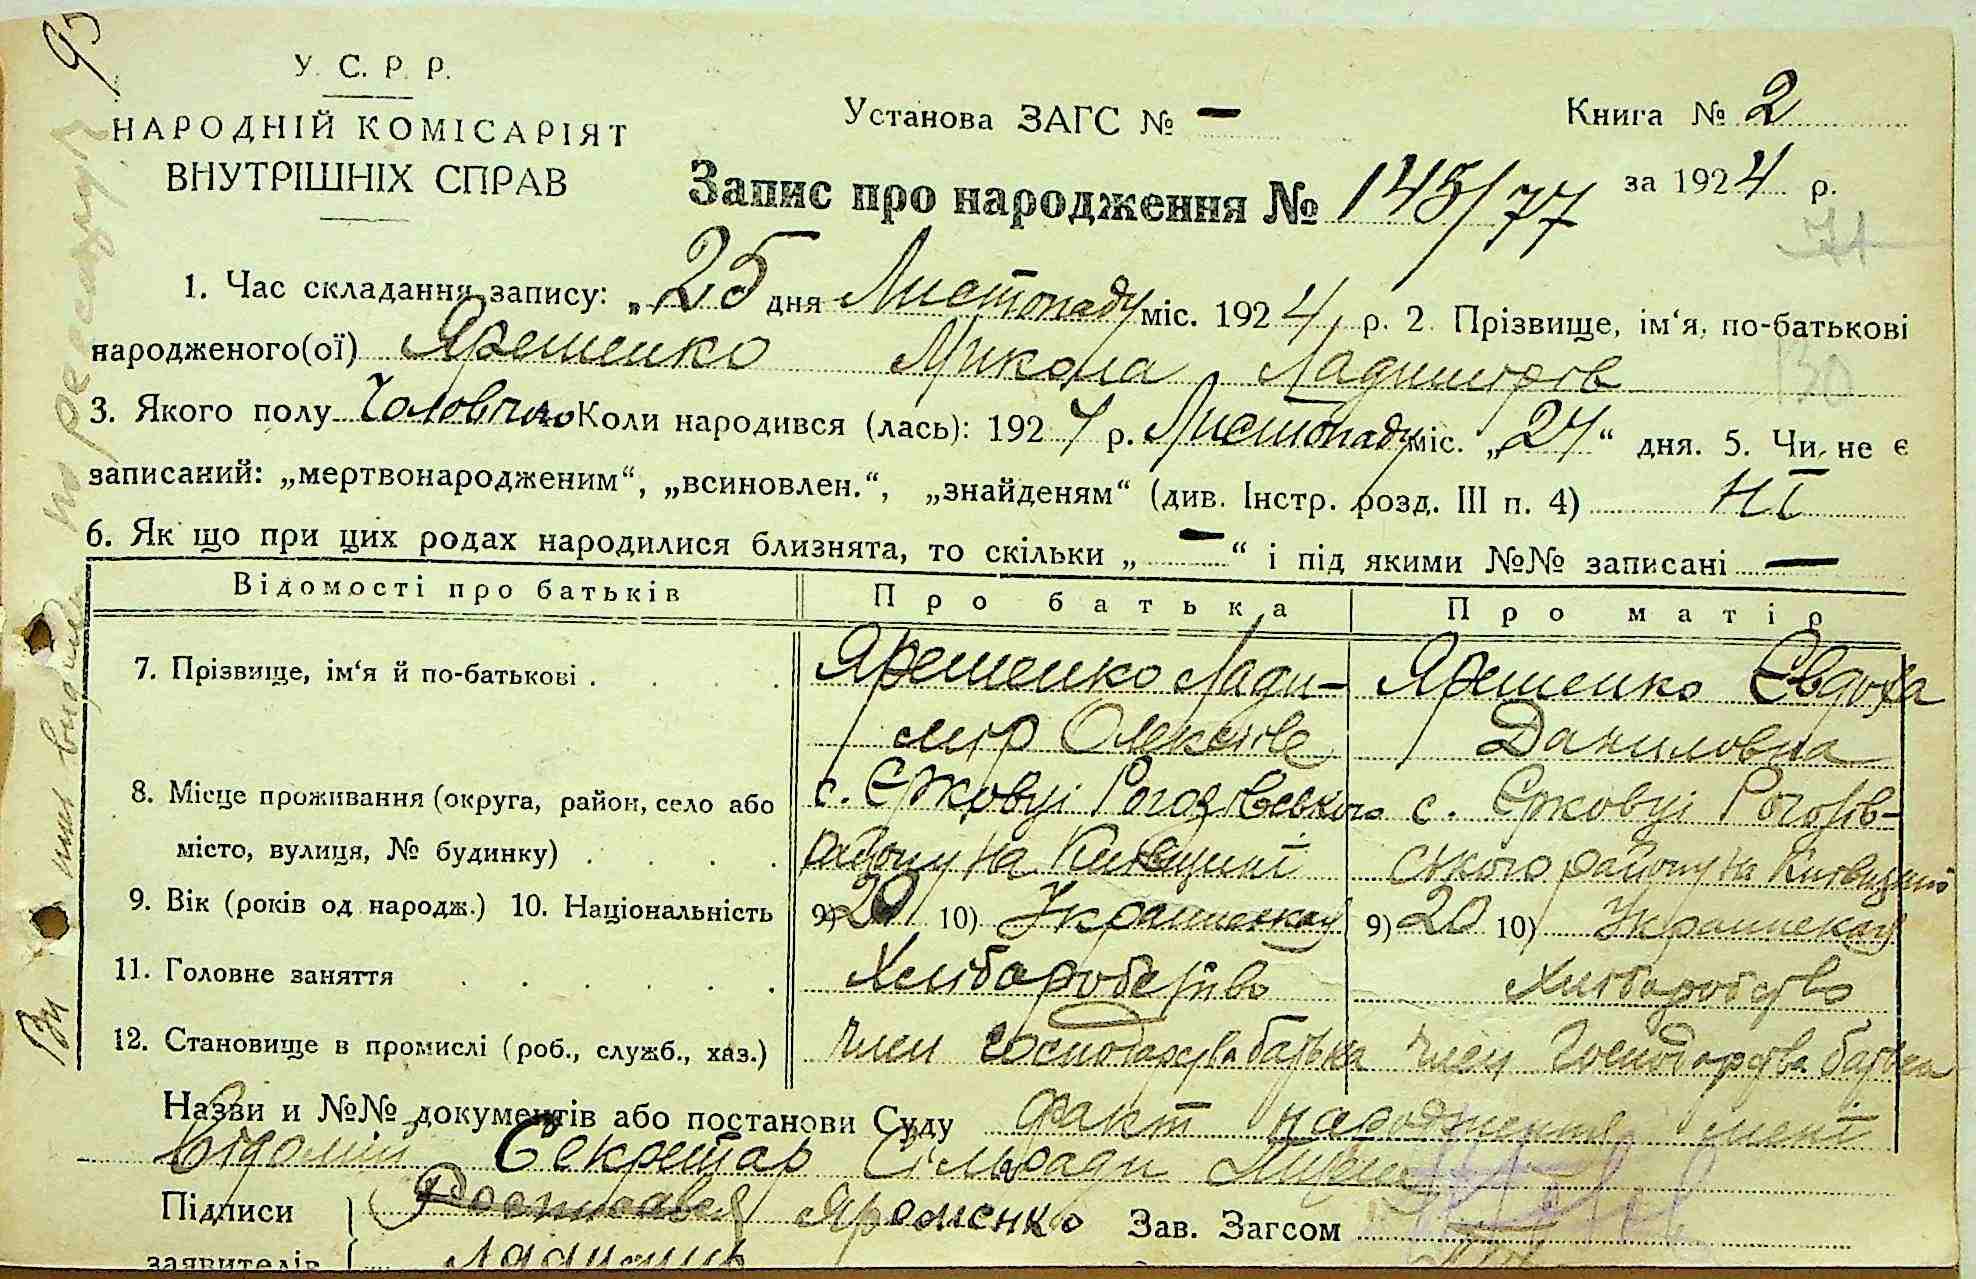 95
У. С. Р. Р.
НАРОДНІЙ КОМІСАРІЯТ
ВНУТРІШНІХ СПРАВ
Установа ЗАГС № —
Книга № 2
Запис про народження № 145/77 за 1924 р.
1. Час складання запису: „25 дня Листопаду міс. 1924 р. 2. Прізвище, ім‘я, по-батькові
народженого(ої) Ярешенко Микола Ладимиров
3. Якого полу Чоловічого Коли народився (лась): 1924 р. Листопаду міс. „24“ дня. 5. Чи не є
записаний: „мертвонародженим“, „всиновлен.“, „знайденям“ (див. Інстр. розд. III п. 4) НІ
6. Як що при цих родах народилися близнята, то скільки „—“ і під якими №№ записані —
Відомості про батьків Про батька Про матір
7. Прізвище, ім‘я й по-батькові . Ярешенко Лади- Ярешенко Євдоха
мир Олексієв Даниловна
8. Місце проживання (округа, район, село або с. Єрковці Рогозівського с. Єрковці Рогозів-
місто, вулиця, № будинку) району на Київщині ського району на Київщині
9. Вік (років од народж.) 10. Національність 9) 20 10) Украинская 9) 20 10) Украинская
11. Головне заняття Хліборобство Хліборобство
12. Становище в промислі (роб., служб., хаз.) член господарства батька член господарства батька
Назви и №№ документів або постанови Суду факт народження мені
відомий Секретар Сільради
Підписи Ярешенко Зав. Загсом
заявителів